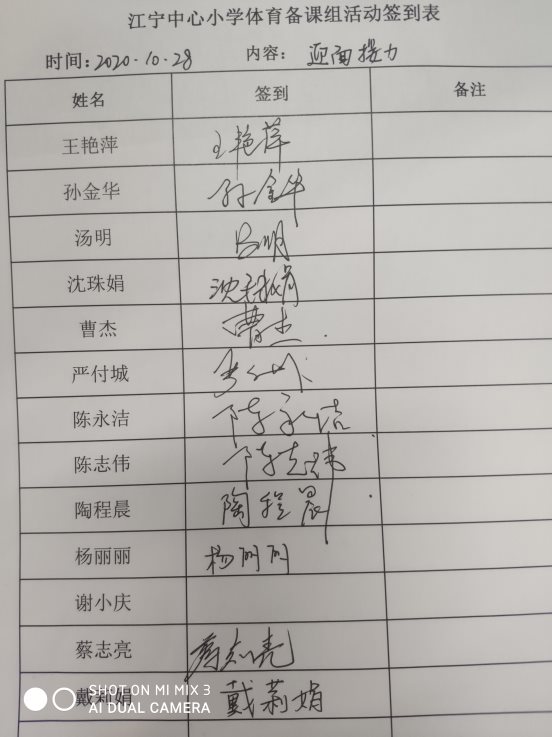 江宁中心小学体育备课组活动签到表
时间:2020.10.28 内容: 迎面接力
姓名 签到 备注
王艳萍 王艳萍
孙金华 孙金华
汤明 汤明
沈珠娟 沈珠娟
曹杰 曹杰
严付城
陈永洁 陈永洁
陈志伟 陈志伟
陶程晨 陶程晨
杨丽丽 杨丽丽
谢小庆
蔡志亮 蔡志亮
戴莉娟 戴莉娟
SHOT ON MI MIX 3
AI DUAL CAMERA